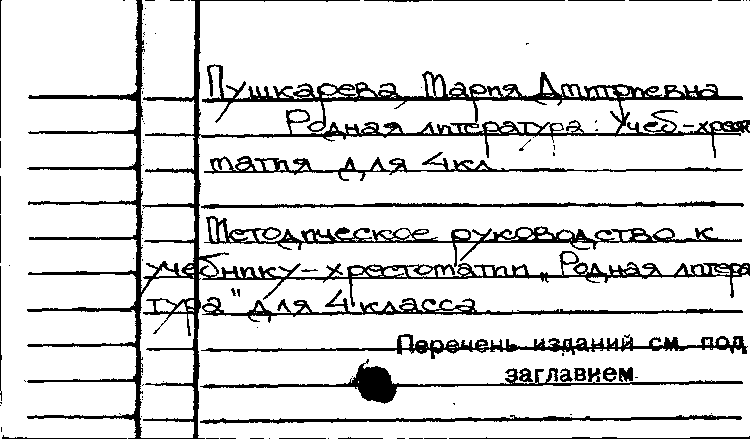 Пушкарева, Мария Дмитриевна
Родная литература: Учеб.-хрес
татия для 4кл.
Методическое руководство к
учебнику-хрестоматии „Родная литера
тура" для 4 класса
Перечень изданий см. под
заглавием